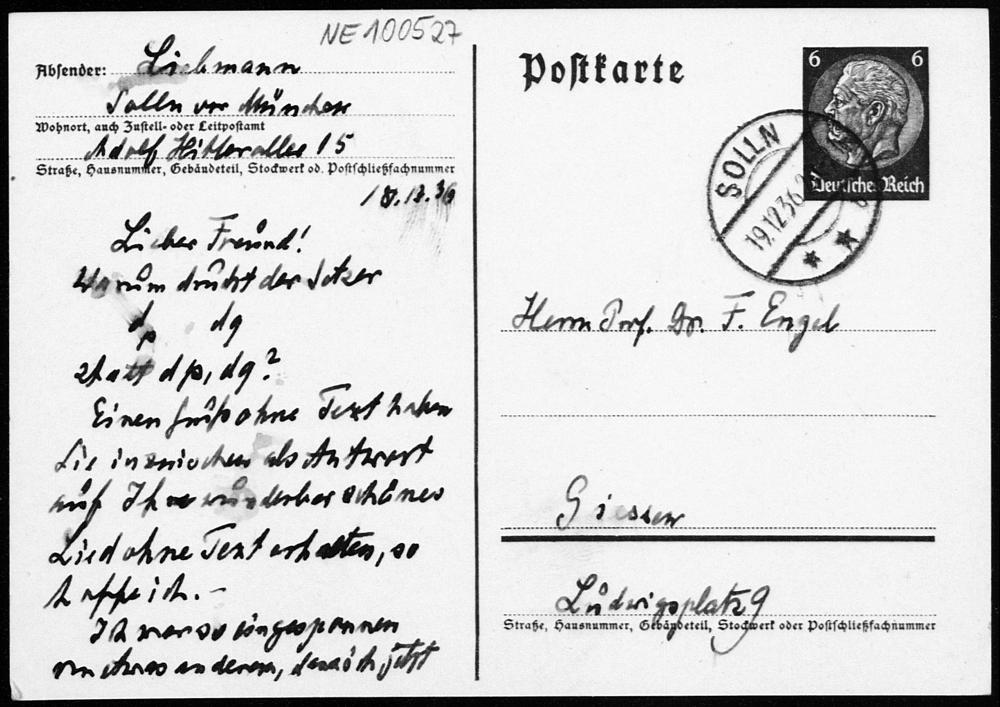 NE100527
Absender: Liebmann
Solln vor München
Wohnort, auch Zustell- oder Leitpostamt
Adolf Hitlerallee 15
Straße, Hausnummer, Gebäudeteil, Stockwerk od. Postschließfachnummer
18.12.36
Lieber Freund!
Warum druckt der Setzer
dp dg
statt dp, dg?
Einen Gruß ohne Text haben
Sie inzwischen als Antwort
auf Ihr wunderbar schönes
Lied ohne Text erhalten, so
hoffe ich. –
Ich war so eingesponnen
von etwas anderem, dass ich jetzt
Postkarte
6 6
Deutsches Reich
SOLLN
19.12.36
Herrn Prof. Dr. F. Engel
Giessen
Ludwigsplatz 9
Straße, Hausnummer, Gebäudeteil, Stockwerk oder Postschließfachnummer